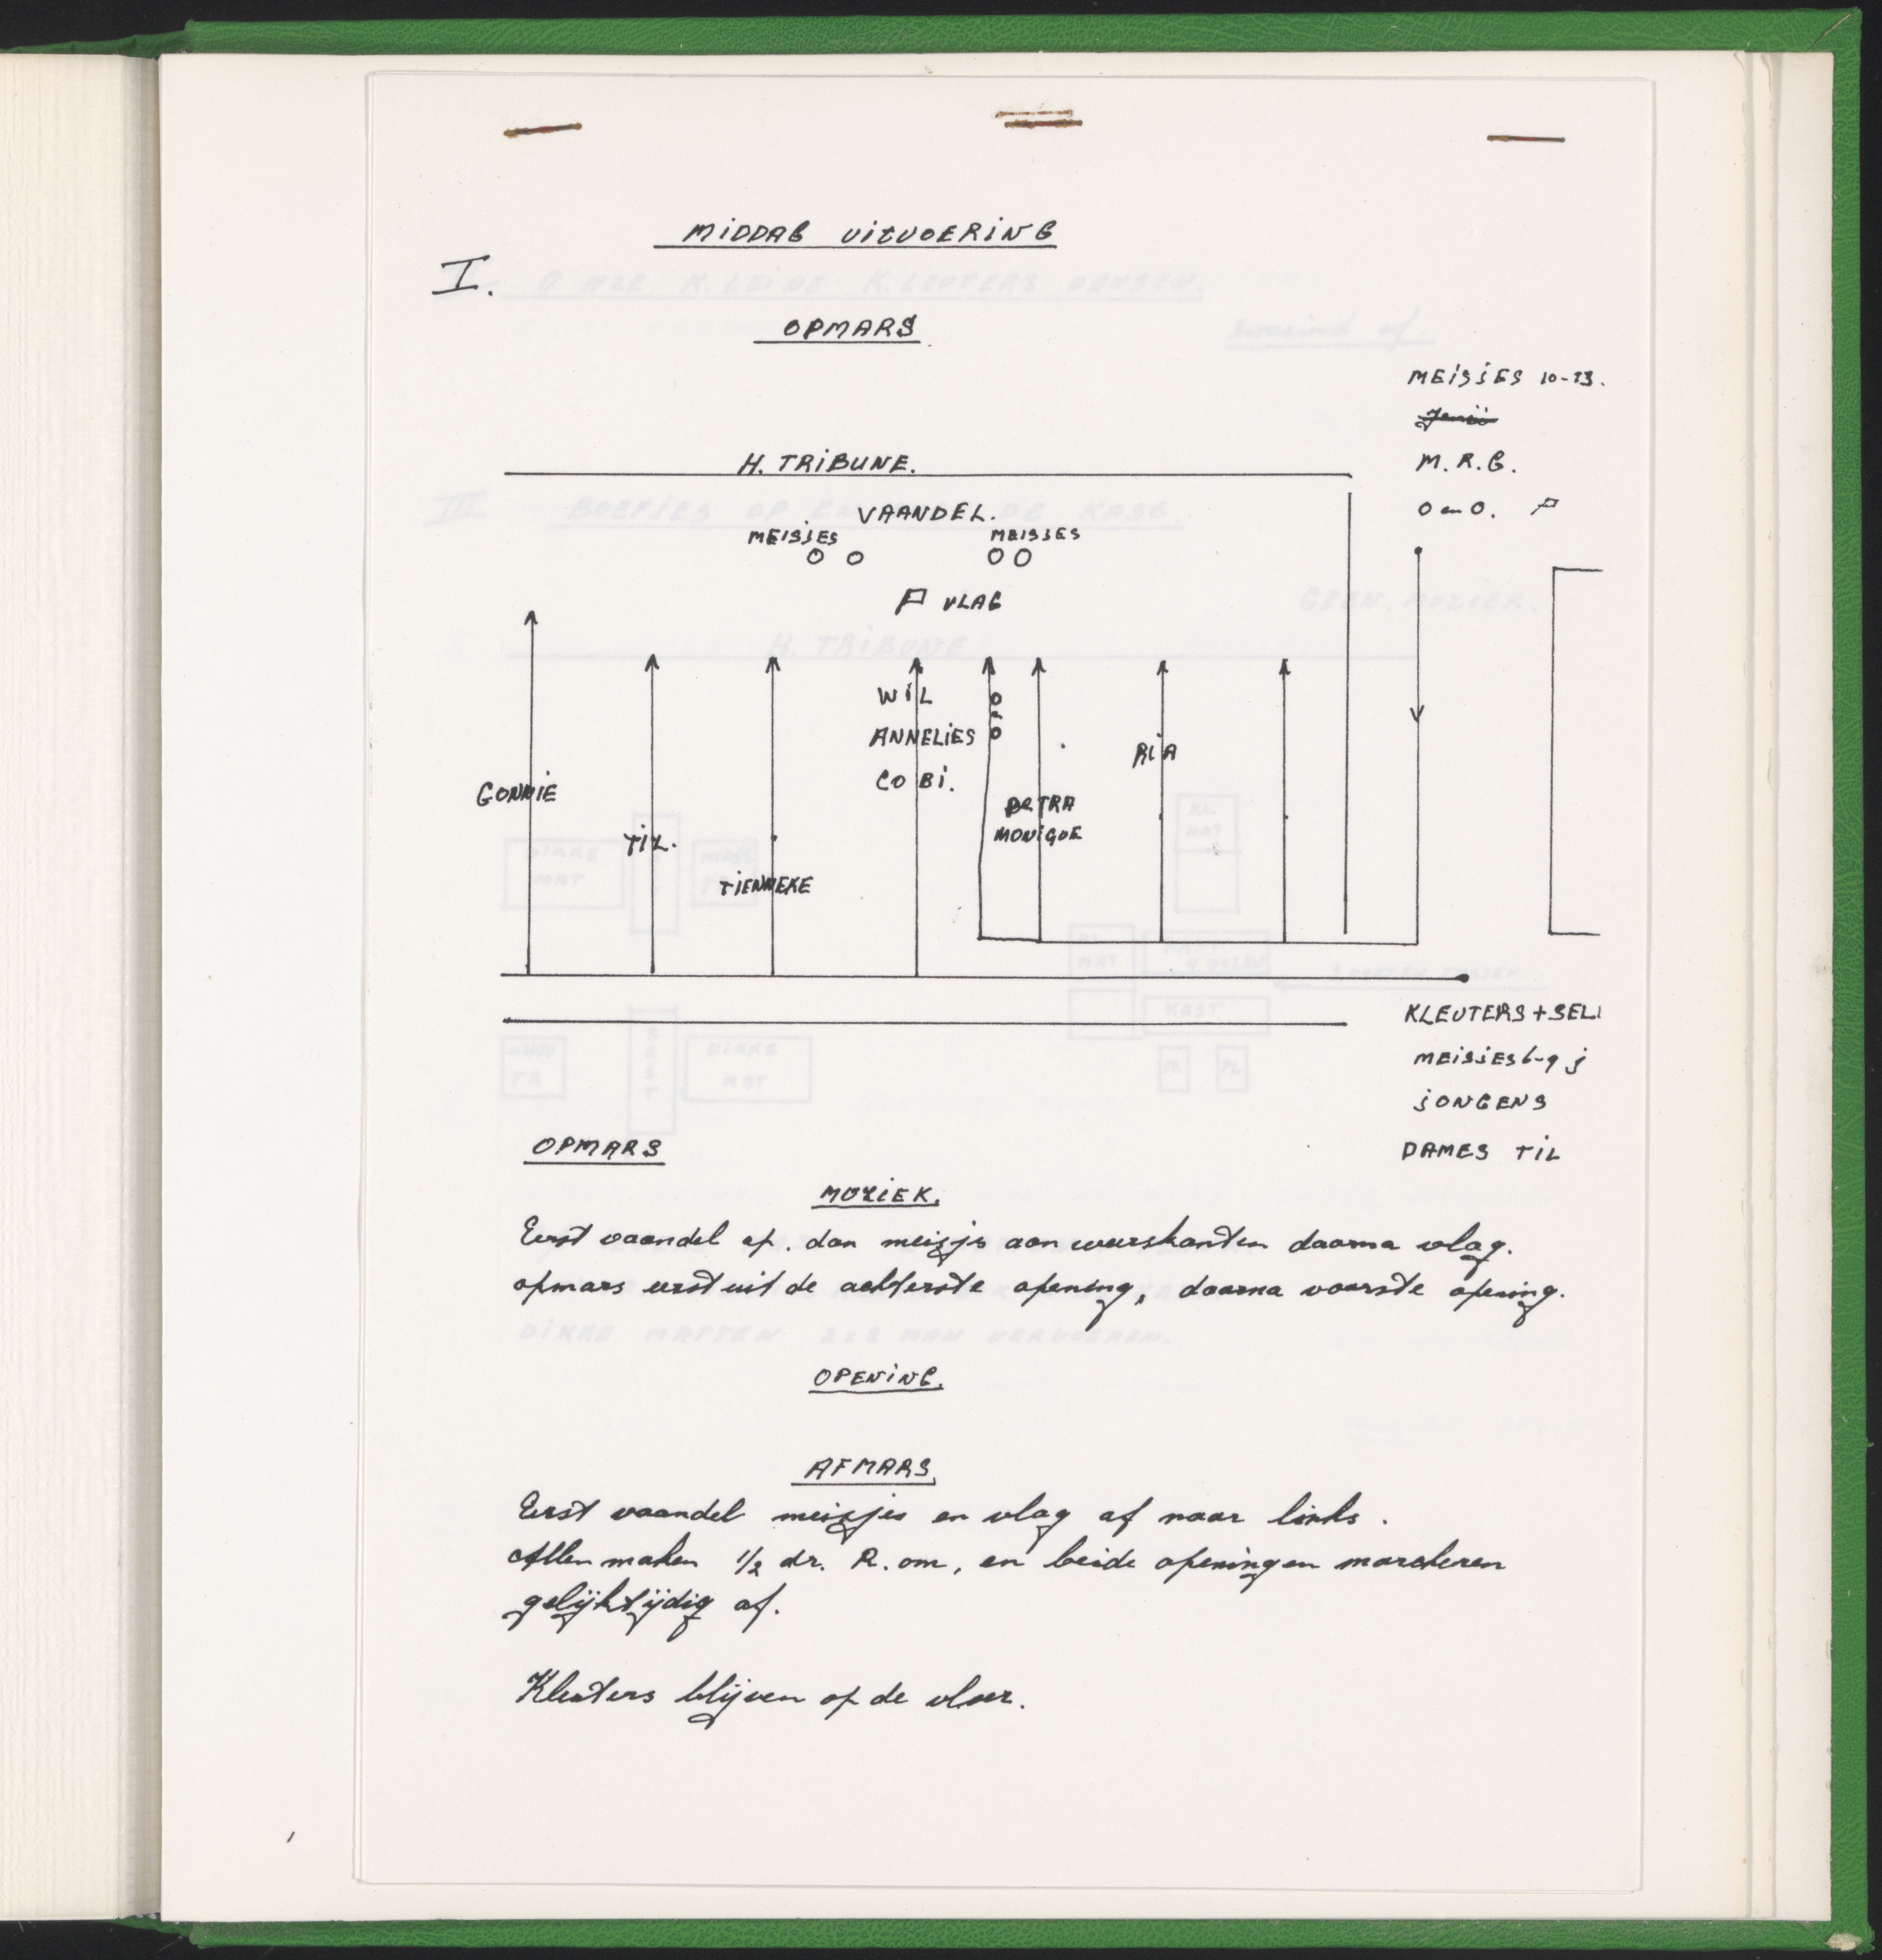 MIDDAG UITVOERING
I.
OPMARS
MEISJES 10-13.
M.R.G.
O en O.
H. TRIBUNE.
VAANDEL.
MEISJES MEISJES
VLAG
WIL
ANNELIES
COBI.
RIA
GONNIE
PETRA
MONIQUE
TIL.
TIENNEKE
KLEUTERS + SEL
MEISJES 6-9 j
JONGENS
DAMES TIL
OPMARS
MUZIEK.
Eerst vaandel op. dan meisjes aan weerskanten daarna vlag.
opmars eerst uit de achterste opening, daarna voorste opening.
OPENING.
AFMARS.
Eerst vaandel meisjes en vlag af naar links.
Allen maken 1/2 dr. R. om, en beide openingen marcheren
gelijktijdig af.
Kleuters blijven op de vloer.